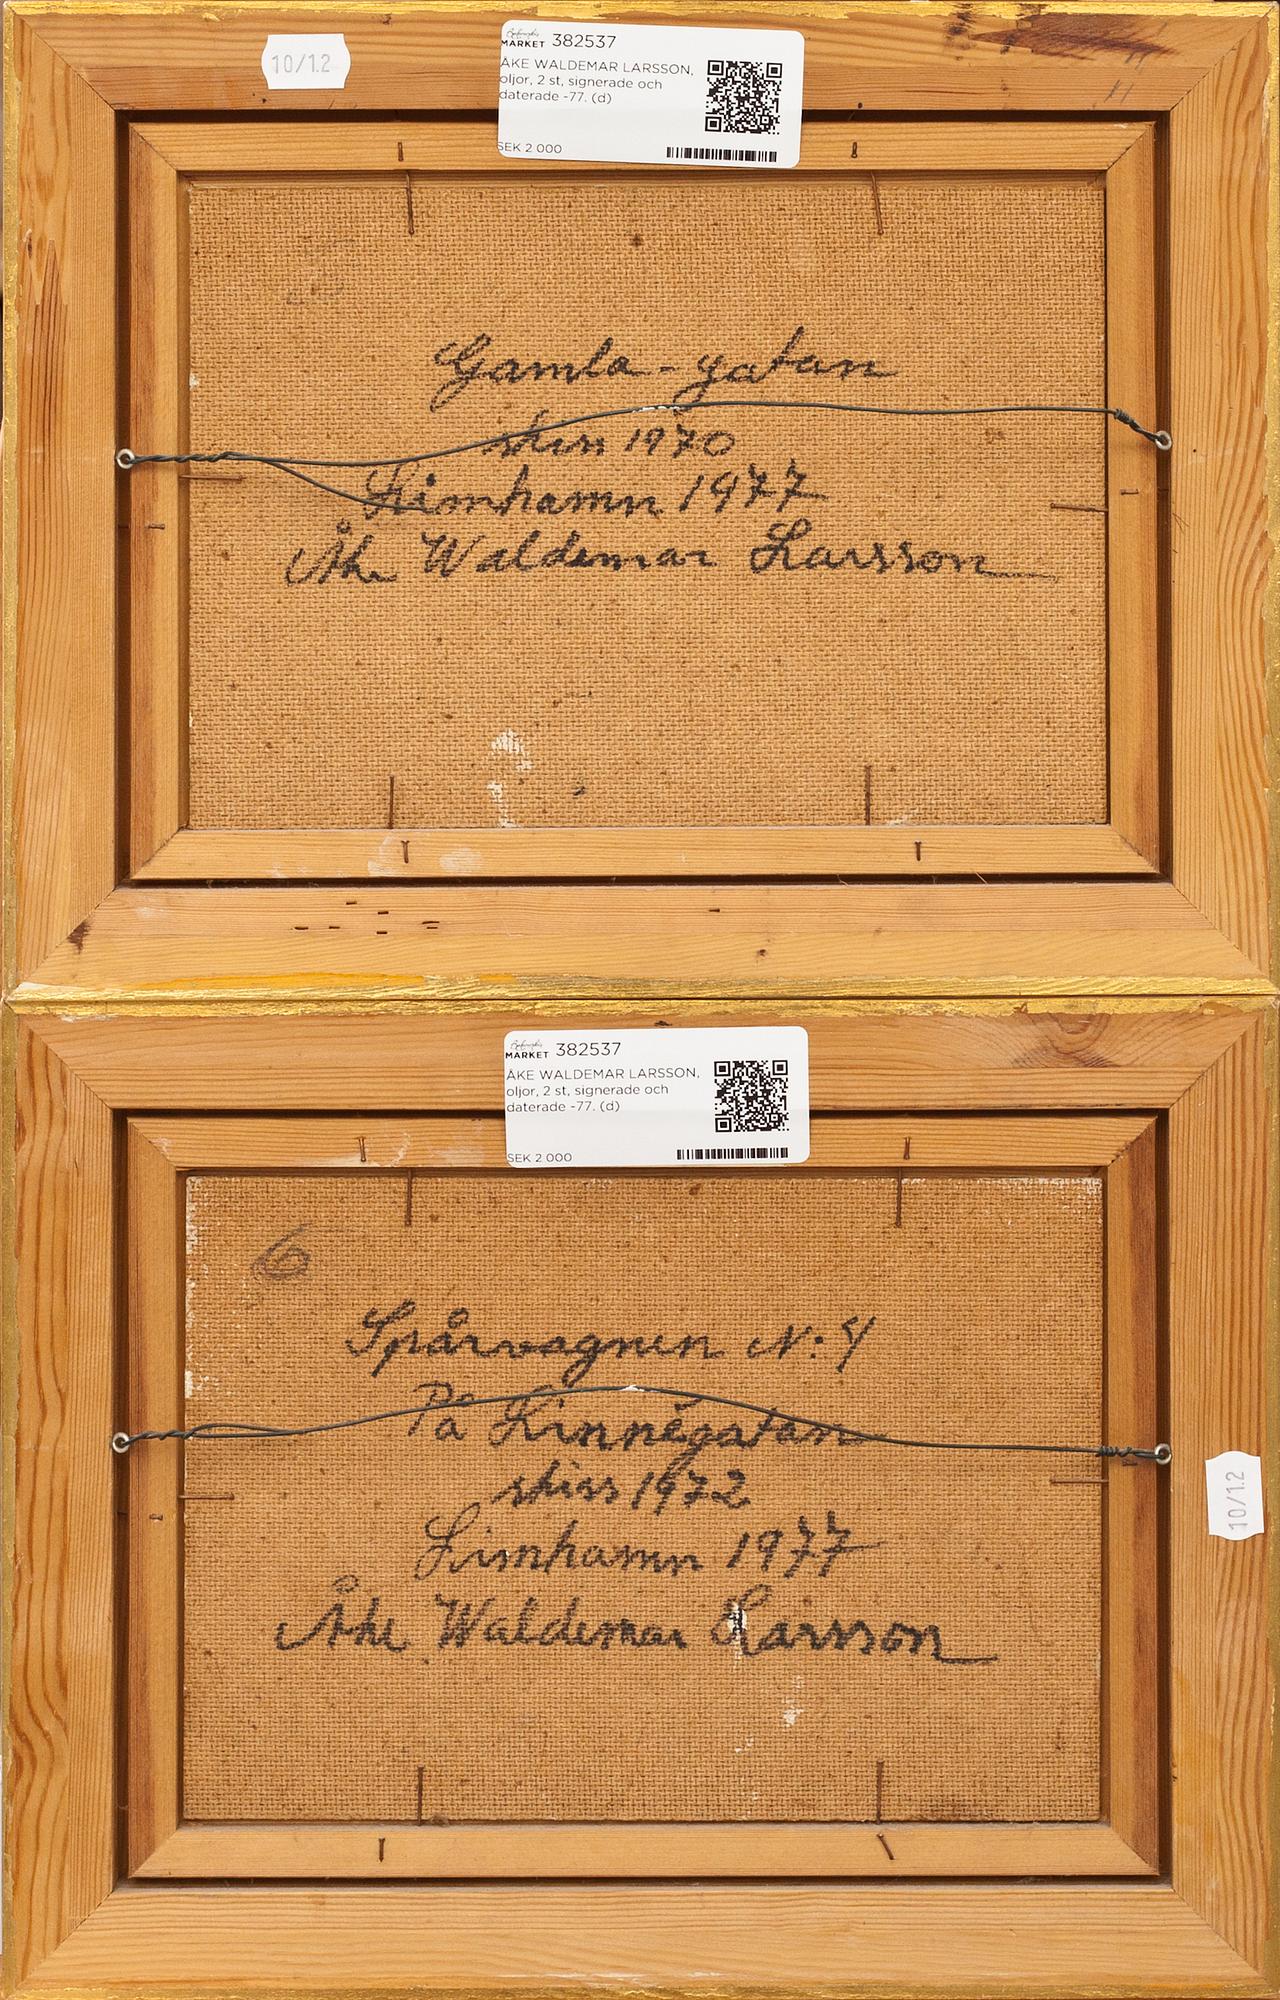 10/12
Bukowskis
MARKET 382537
ÅKE WALDEMAR LARSSON,
oljor, 2 st, signerade och
daterade -77. (d)
SEK 2 000
Gamla-gatan
skiss 1970
Limhamn 1977
Åke Waldemar Larsson
Bukowskis
MARKET 382537
ÅKE WALDEMAR LARSSON,
oljor, 2 st, signerade och
daterade -77. (d)
SEK 2 000
6
Spårvagnen N:4
På Linnégatan
skiss 1972
Limhamn 1977
Åke Waldemar Larsson
10/12